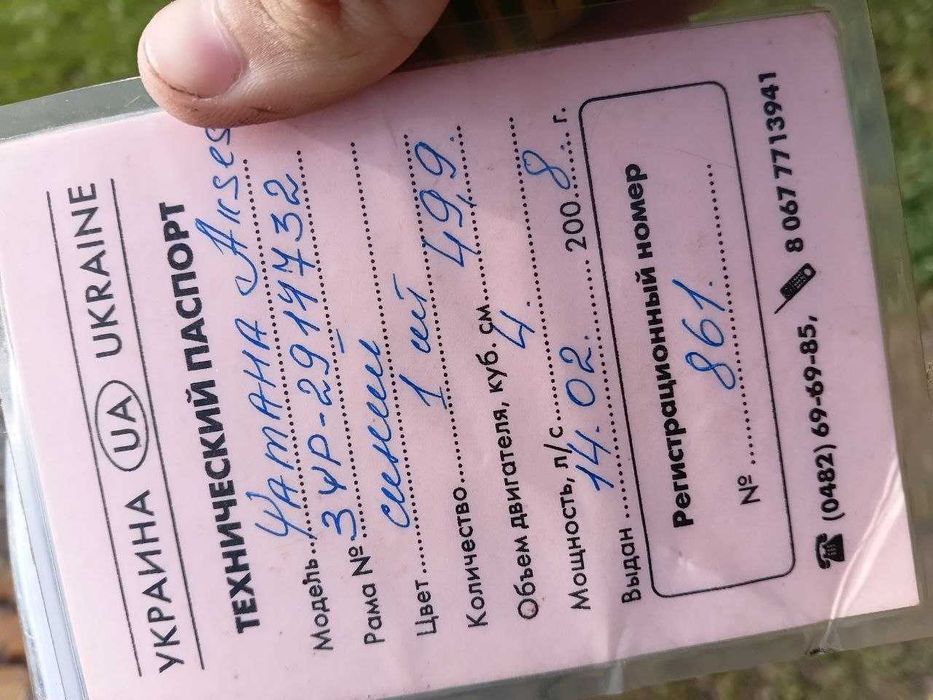 УКРАИНА UA UKRAINE
ТЕХНИЧЕСКИЙ ПАСПОРТ
Модель УАМАНА Akses
Рама № 3УР-2914732
Цвет синий
Количество 1 шт
Объем двигателя, куб. см 49,9
Мощность, л/с 4.
Выдан 14.02. 2008 г.
Регистрационный номер
№ 861.
(0482) 69-69-85, 8 067 7713941